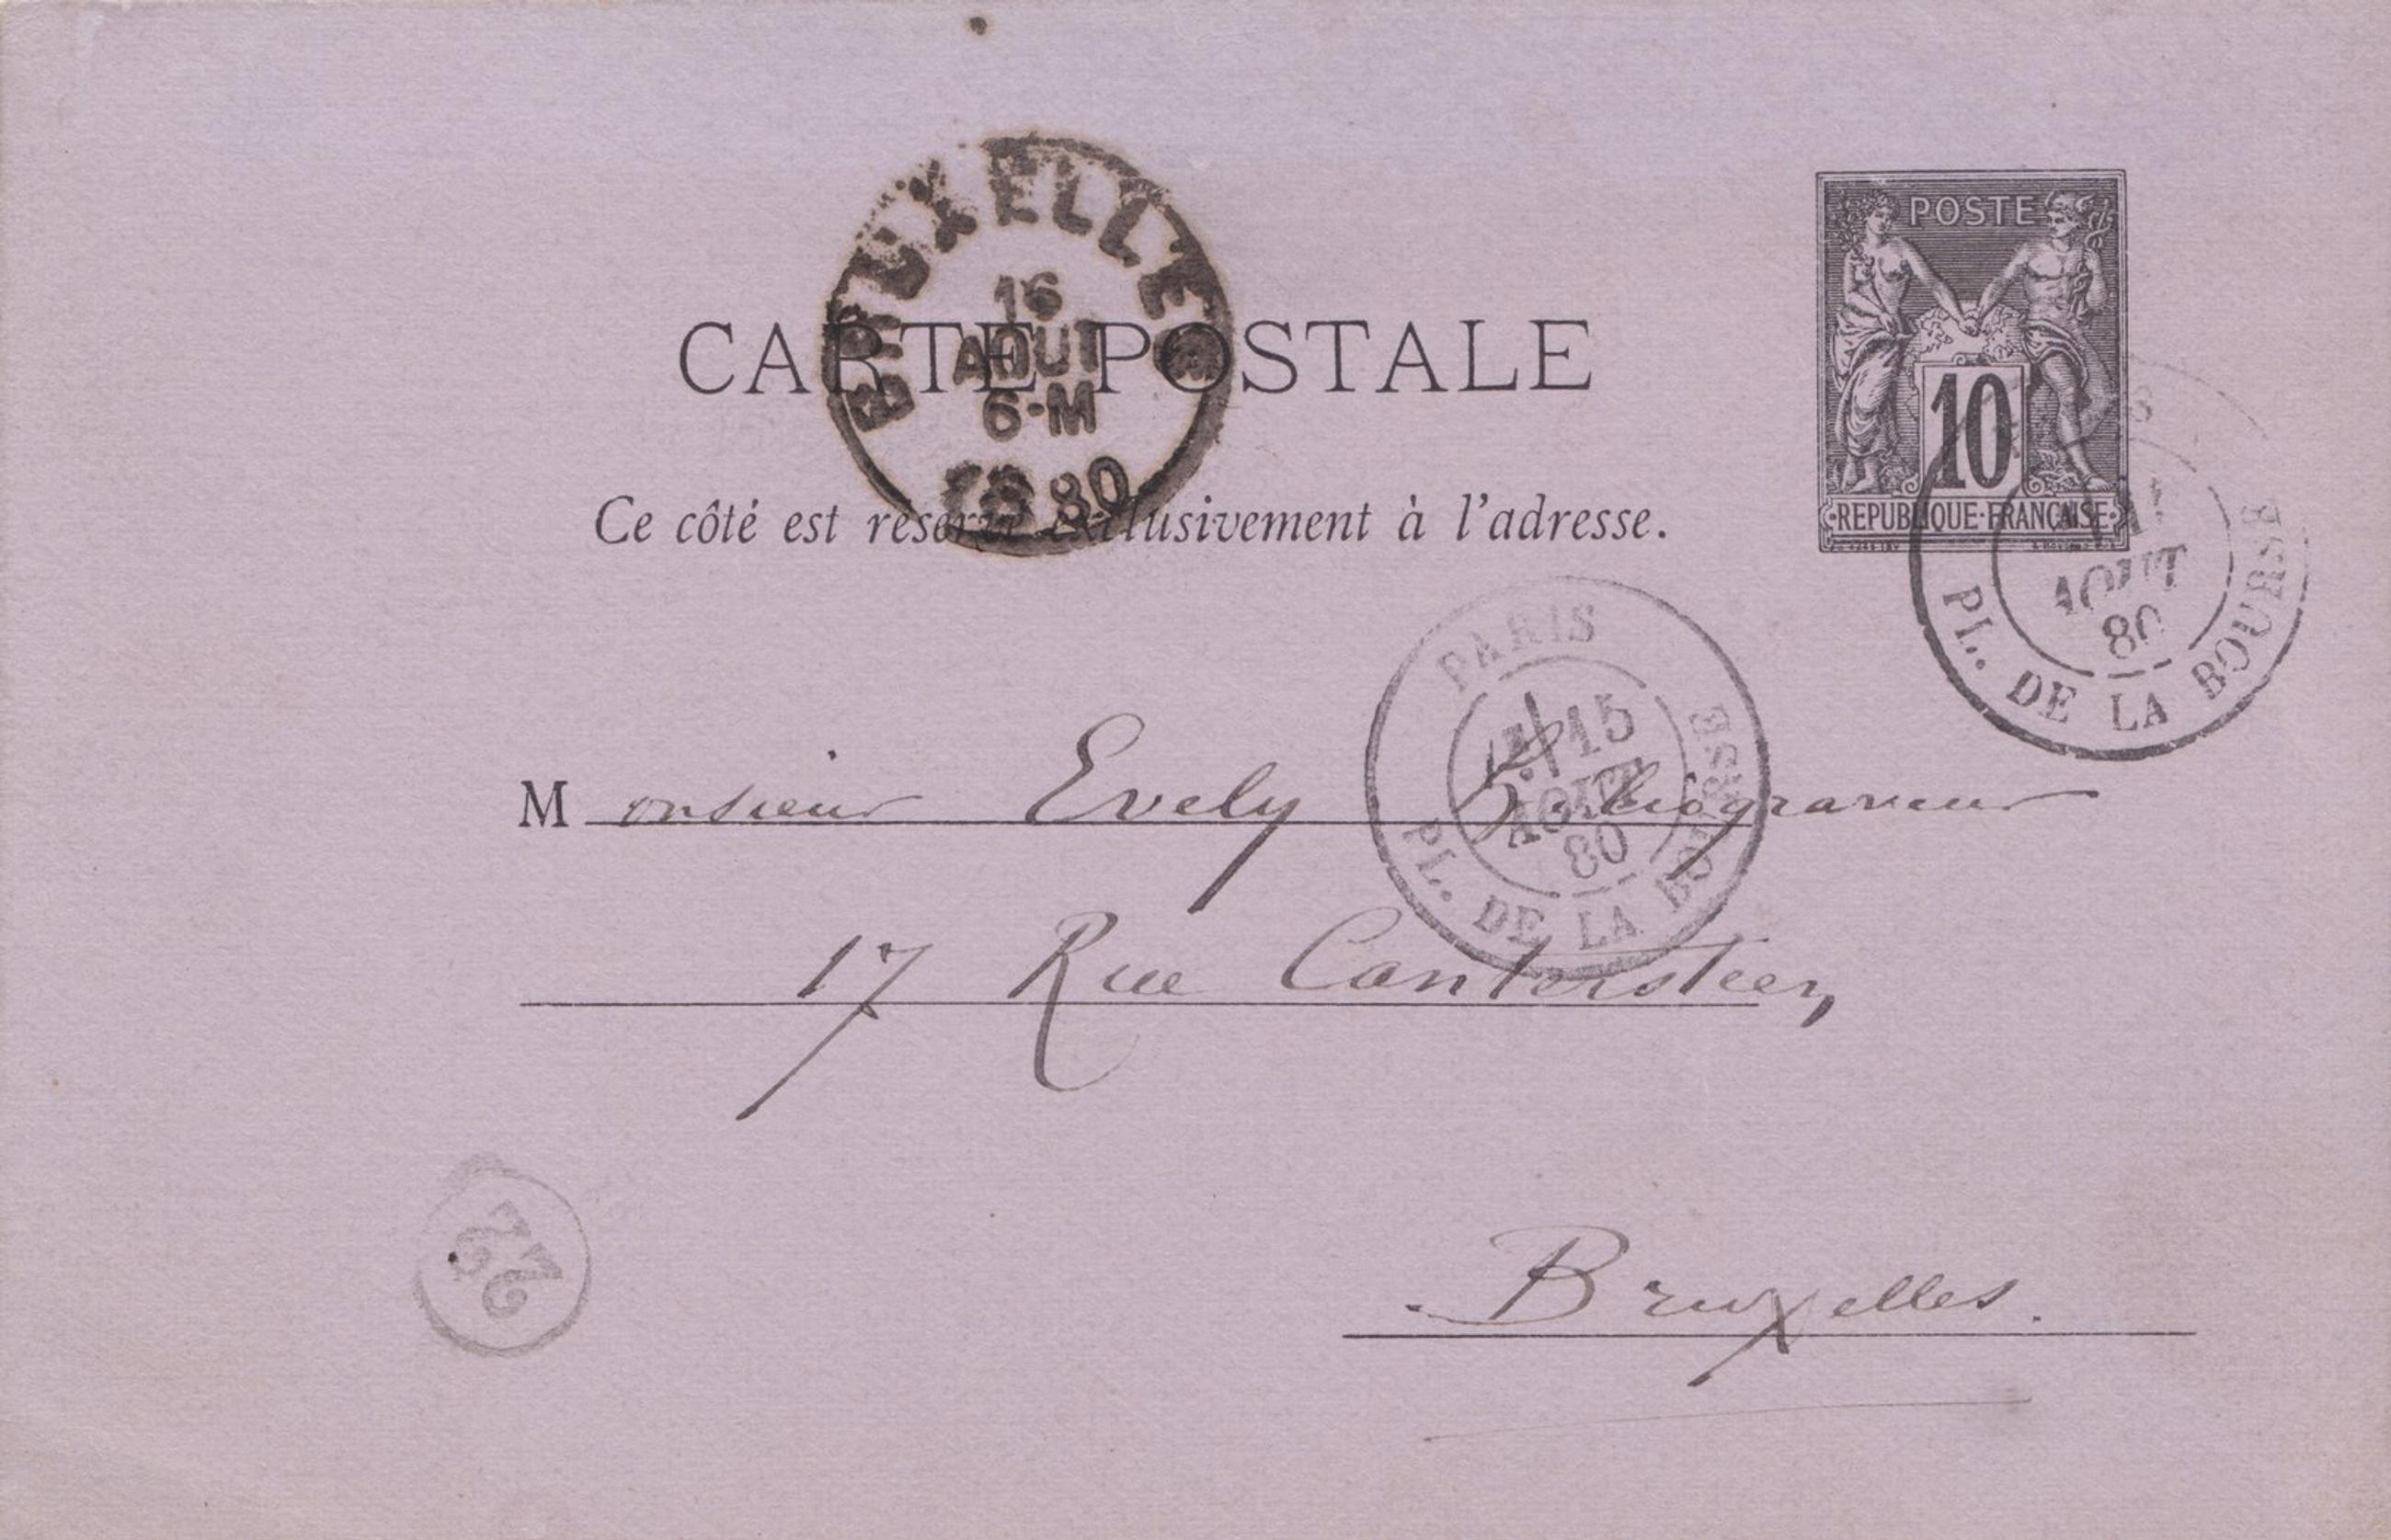 BRUXELLES
16
AOUT
6-M
80
POSTE
10
REPUBLIQUE·FRANÇAISE
CARTE POSTALE
Ce côté est réservé exclusivement à l'adresse.
AOUT
80
PL. DE LA BOURSE
PARIS
15
AOUT
80
PL. DE LA BOURSE
Monsieur Evely
17 Rue Cantersteen
Bruxelles.
22